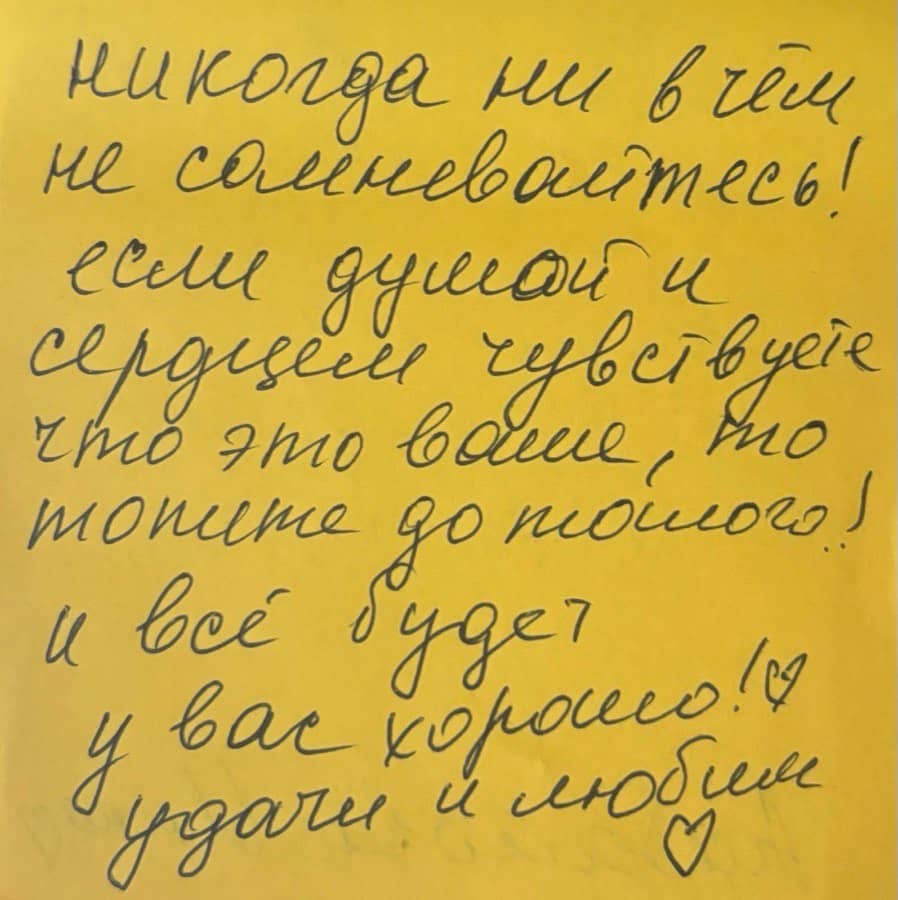 никогда ни в чём
не сомневайтесь!
если душой и
сердцем чувствуете
что это ваше, то
топите до талого!
и всё будет
у вас хорошо!♡
удачи и любим
♡